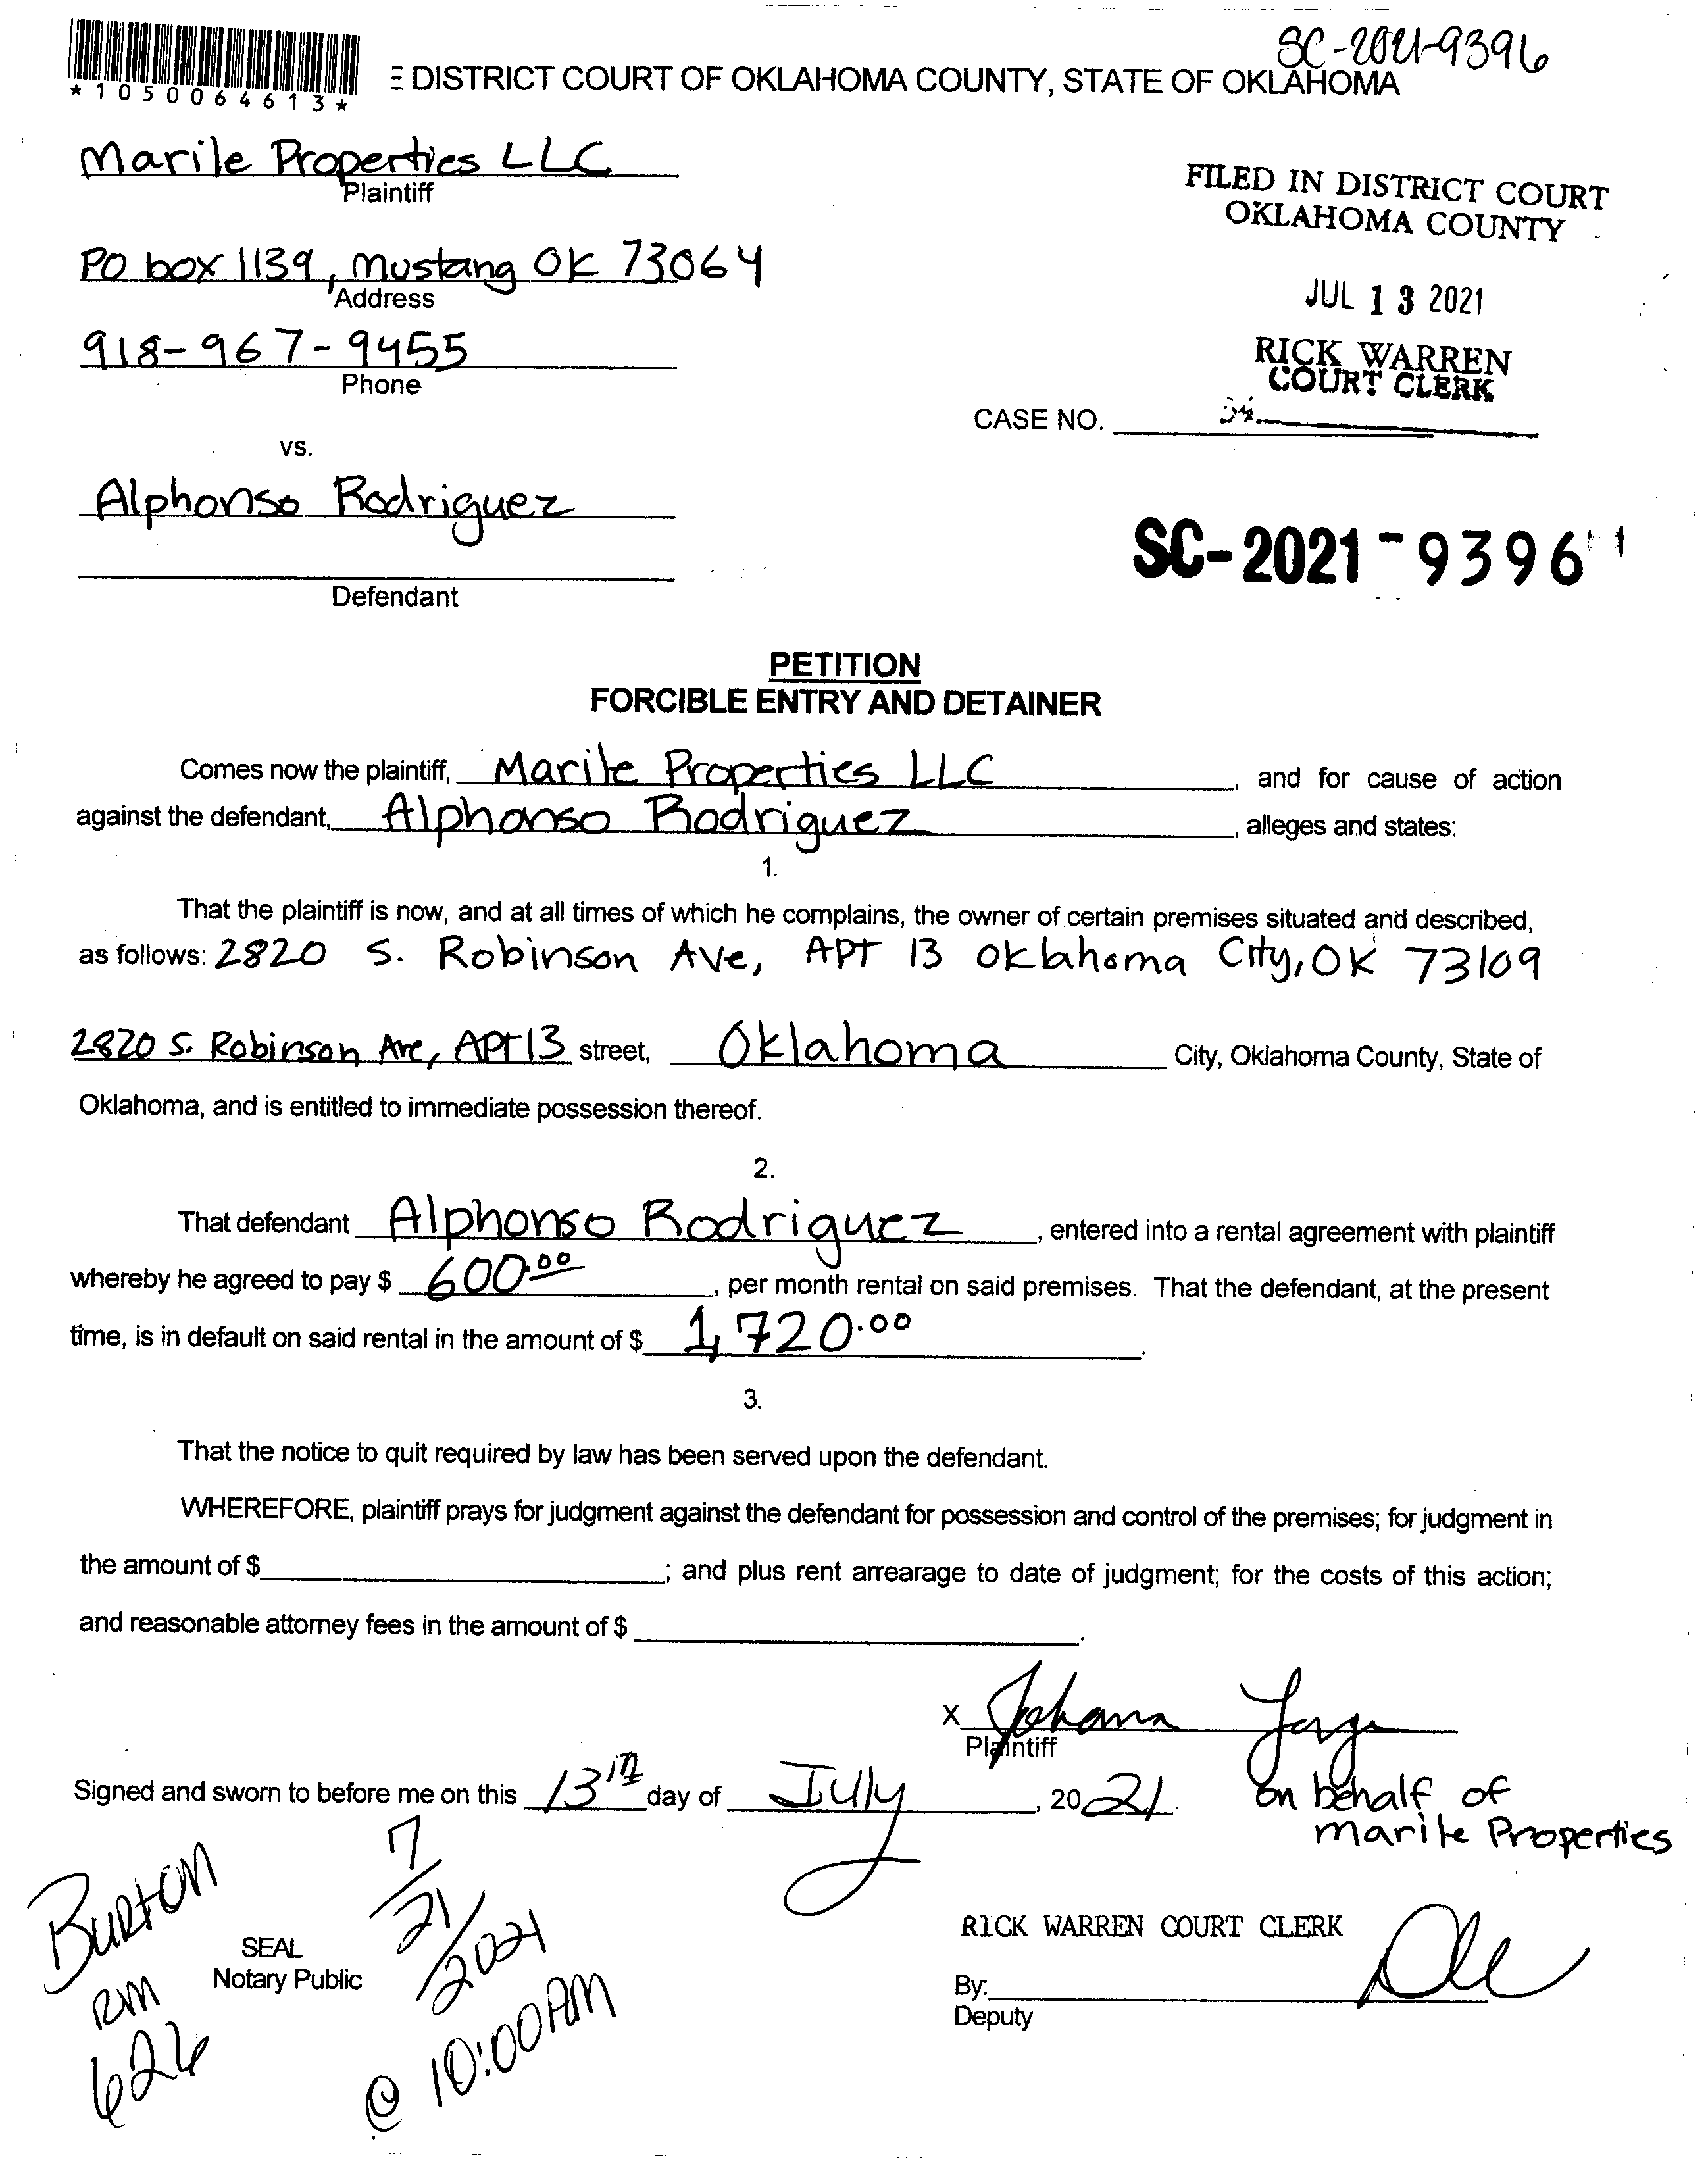 SC-2021-9396
*1050064613*
E DISTRICT COURT OF OKLAHOMA COUNTY, STATE OF OKLAHOMA
Marile Properties LLC
Plaintiff
FILED IN DISTRICT COURT
OKLAHOMA COUNTY
PO box 1139, Mustang OK 73064
Address
JUL 13 2021
918-967-9455
Phone
RICK WARREN
COURT CLERK
CASE NO.
vs.
Alphonso Rodriguez
SC-2021-9396
Defendant
PETITION
FORCIBLE ENTRY AND DETAINER
Comes now the plaintiff, Marile Properties LLC, and for cause of action
against the defendant, Alphonso Rodriguez, alleges and states:
1.
That the plaintiff is now, and at all times of which he complains, the owner of certain premises situated and described,
as follows: 2820 S. Robinson Ave, APT 13 Oklahoma City, OK 73109
2820 S. Robinson Ave, APT 13 street, Oklahoma City, Oklahoma County, State of
Oklahoma, and is entitled to immediate possession thereof.
2.
That defendant Alphonso Rodriguez, entered into a rental agreement with plaintiff
whereby he agreed to pay $ 600.00, per month rental on said premises. That the defendant, at the present
time, is in default on said rental in the amount of $ 1,720.00.
3.
That the notice to quit required by law has been served upon the defendant.
WHEREFORE, plaintiff prays for judgment against the defendant for possession and control of the premises; for judgment in
the amount of $ ; and plus rent arrearage to date of judgment; for the costs of this action;
and reasonable attorney fees in the amount of $ .
X Johana
Plaintiff
Signed and sworn to before me on this 13th day of July, 2021.
on behalf of
Marile Properties
BURTON
RM
626
7/21/2021
@ 10:00AM
SEAL
Notary Public
RICK WARREN COURT CLERK
By:
Deputy